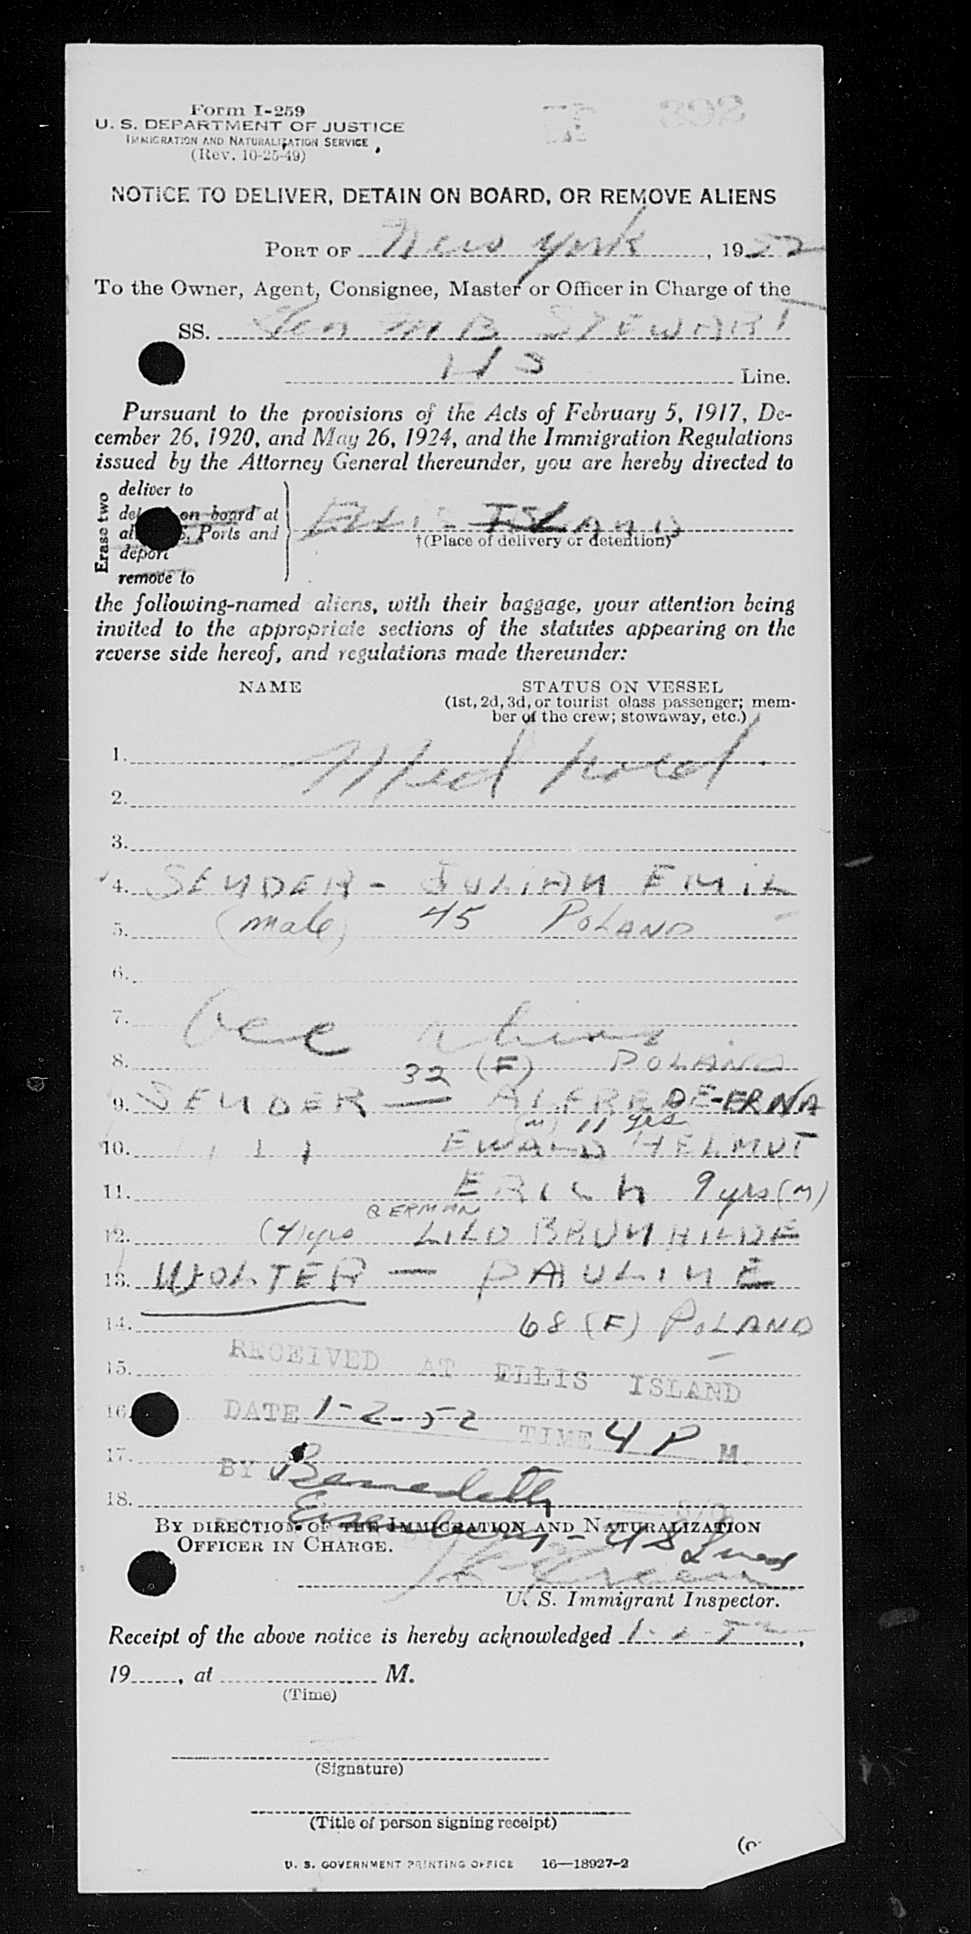 Form I-259
U. S. DEPARTMENT OF JUSTICE
IMMIGRATION AND NATURALIZATION SERVICE
(Rev. 10-25-49)
NOTICE TO DELIVER, DETAIN ON BOARD, OR REMOVE ALIENS
PORT OF New York, 19
To the Owner, Agent, Consignee, Master or Officer in Charge of the
SS. Gen M B STEWART
Line.
Pursuant to the provisions of the Acts of February 5, 1917, De-
cember 26, 1920, and May 26, 1924, and the Immigration Regulations
issued by the Attorney General thereunder, you are hereby directed to
Erase two
deliver to
on board at
Ports and
deport
remove to
ELLIS ISLAND
†(Place of delivery or detention)
the following-named aliens, with their baggage, your attention being
invited to the appropriate sections of the statutes appearing on the
reverse side hereof, and regulations made thereunder:
NAME STATUS ON VESSEL
(1st, 2d, 3d, or tourist class passenger; mem-
ber of the crew; stowaway, etc.)
1. Med hold
2.
3.
4. SENDER - JULIAN EMIL
5. (male) 45 POLAND
6.
7. Acc aliens
8. 32 (F) POLAND
9. SENDER — ALFREDE-ERNA
(m) 11 yrs
10. EWALD HELMUT
11. ERICH 9 yrs (M)
GERMAN
12. (4) yrs LILO BRUNHILDE
13. WOLTER — PAULINE
14. 68 (F) POLAND
15. RECEIVED AT ELLIS ISLAND
16. DATE 1-2-52 TIME 4 P M.
17. BY
18.
BY DIRECTION OF THE IMMIGRATION AND NATURALIZATION
OFFICER IN CHARGE.
U. S. Immigrant Inspector.
Receipt of the above notice is hereby acknowledged 1-2-52,
19, at M.
(Time)
(Signature)
(Title of person signing receipt)
U. S. GOVERNMENT PRINTING OFFICE 16—18927-2